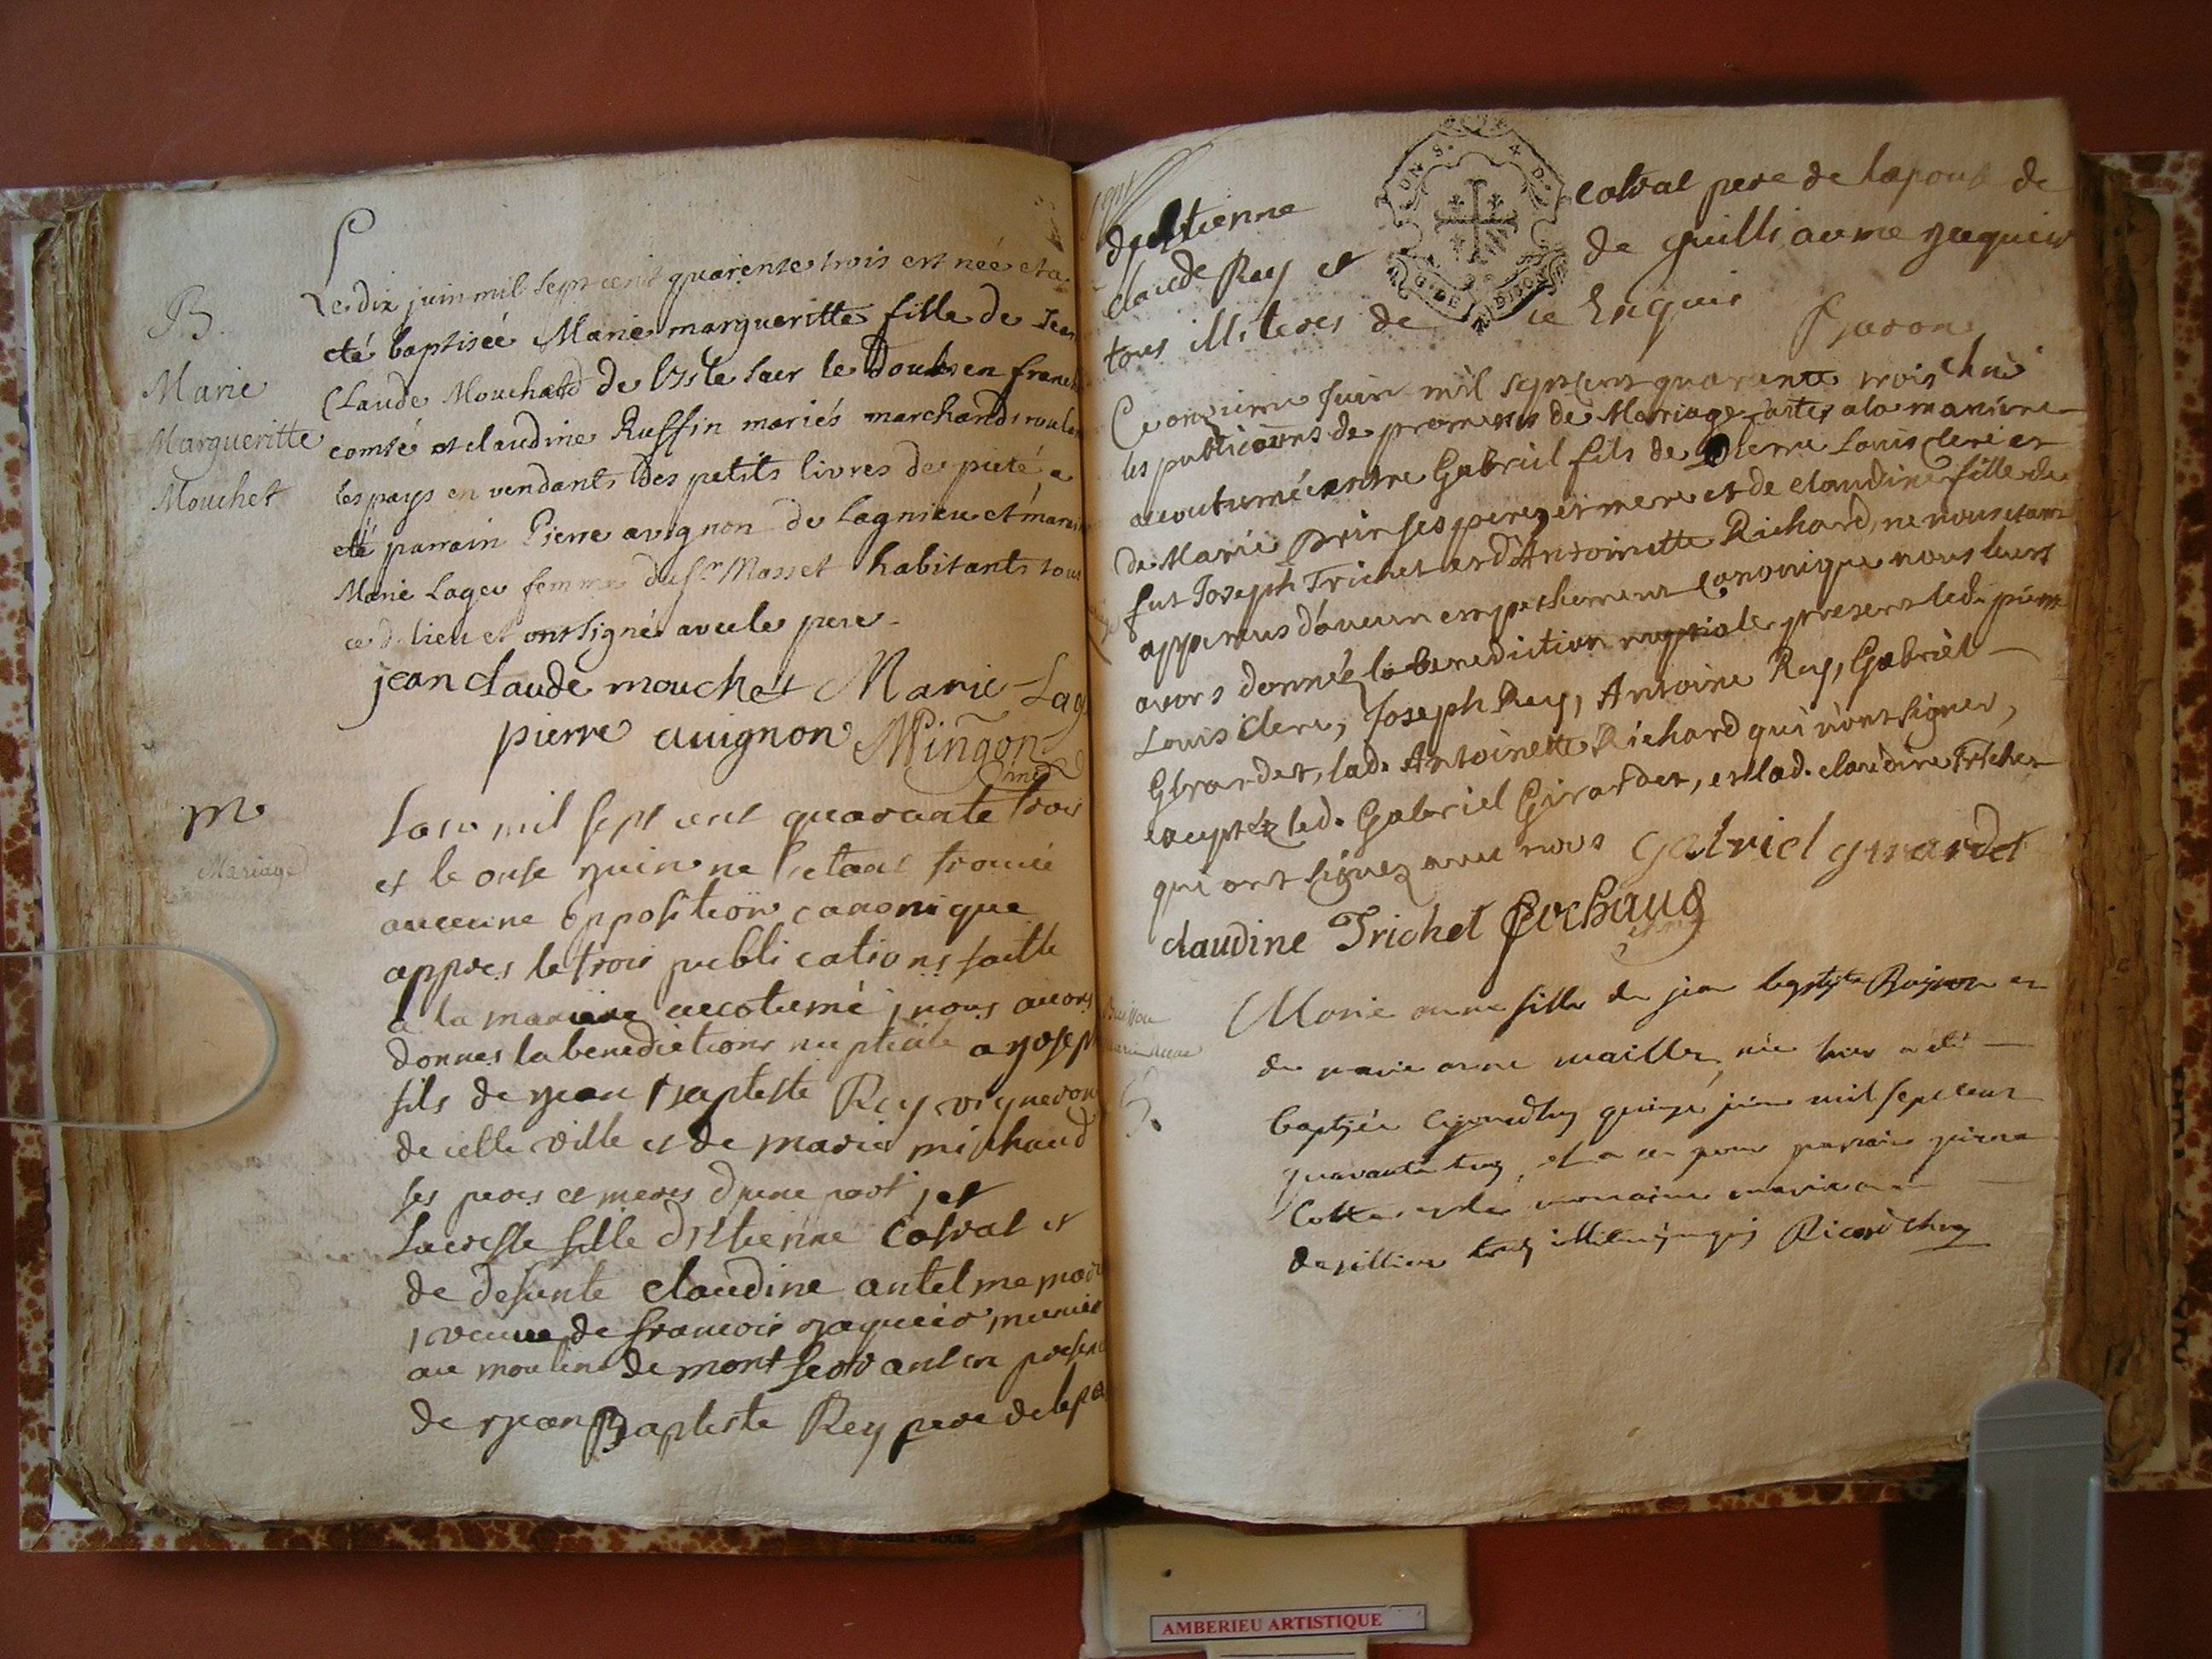 B.
Marie
Margueritte
Mouchet
Le dix juin mil sept cent quarente trois est née et a
eté baptiseé Marie margueritte fille de Jean
Claude Mouchet de lisle sur le doubs en franche
comté et claudine Ruffin mariés marchands roulan
les pays en vendants des petits livres de pieté, a
eté parrain Pierre avignon de lagnieu et marei
Marie Lager femme du sr Masset habitants tous
ce d. lieu et ont signé avec le pere
jean claude mouchet Marie Lag
pierre auignon Mingon
m
Mariage
Lan mil sept cent quarante trois
et le onse yuin ne setant trouué
aucune opposition canonique
appres le trois publications faitte
a la maniere accotumé, nous auons
donnes la benediction nuptiale a yoseph
fils de yean Baptiste Rey vigneron
de cette ville et de marie michaud
ses peres et meres d'une part, et
Lucresse fille d'Etienne Cotval et
de defunte claudine antelme
veuue de francois yaquier munier
au moulin de montferrant en presen
de yean Baptiste Rey pere de lepou
d'estienne cotval pere de lapouse de
claude Rey et de guilliaume yaquier
tous illiteres de ce Enquis
Baron
Ce onzieme Juin mil sept cent quarante trois
les publicaons de promesses de Mariage faites a la maniere
accoutumée entre Gabriel fils de Pierre Louis clerc et
de Marie prin ses pere et mere et de claudine fille de
fut Joseph Trichet et d'Antoinette Richard, ne nous etant
apparus d'aucun empechement canonique nous leurs
avons donné la benediction nuptiale present led. pierre
Louis clerc, Joseph Rey, Antoine Rey, Gabriel
Girardet, lad. Antoinette Richard qui n'ont signer,
exceptéz led. Gabriel Girardet, et lad. claudine Trichet
qui ont signez avec nous gabriel girardet
claudine Trichet
Marie anne fille de jean baptiste Buisson et
de marie anne maillet, née hier a été
baptisée cejourdhuy quinze juin mil sept cent
quarante troy, et a eu pour parrain pierre
Cotte et de marraine marie anne
tous illiteres enquis Ricard
B.
AMBERIEU ARTISTIQUE